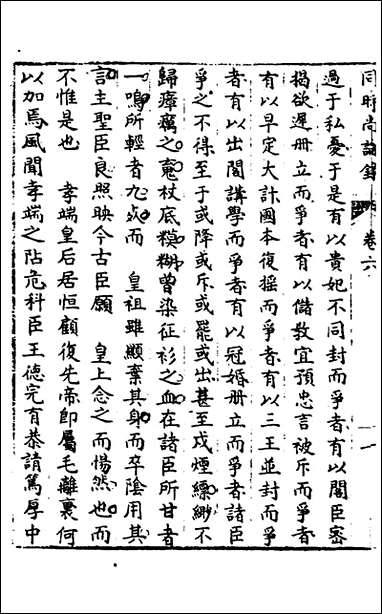 同時尚論錄 卷六 一
過于私憂于是有以貴妃不同封而爭者有以閣臣密
揭欲遲册立而爭者有以儲教宜預忠言被斥而爭者
有以早定大計國本復搖而爭者有以三王並封而爭
者有以出閣講學而爭者有以冠婚册立而爭者諸臣
爭之不得至于或降或斥或罷或出甚至戍煙繚緲不
歸瘴癘之魂杖底模糊曾染征衫之血在諸臣所甘者
一鳴所輕者九死而 皇祖雖顯棄其身而卒陰用其
言主聖臣良照映今古臣願 皇上念之而惕然也而
不惟是也 孝端皇后居恒顧復先帝卽屬毛離裏何
以加焉風聞孝端之阽危科臣王德完有恭請篤厚中